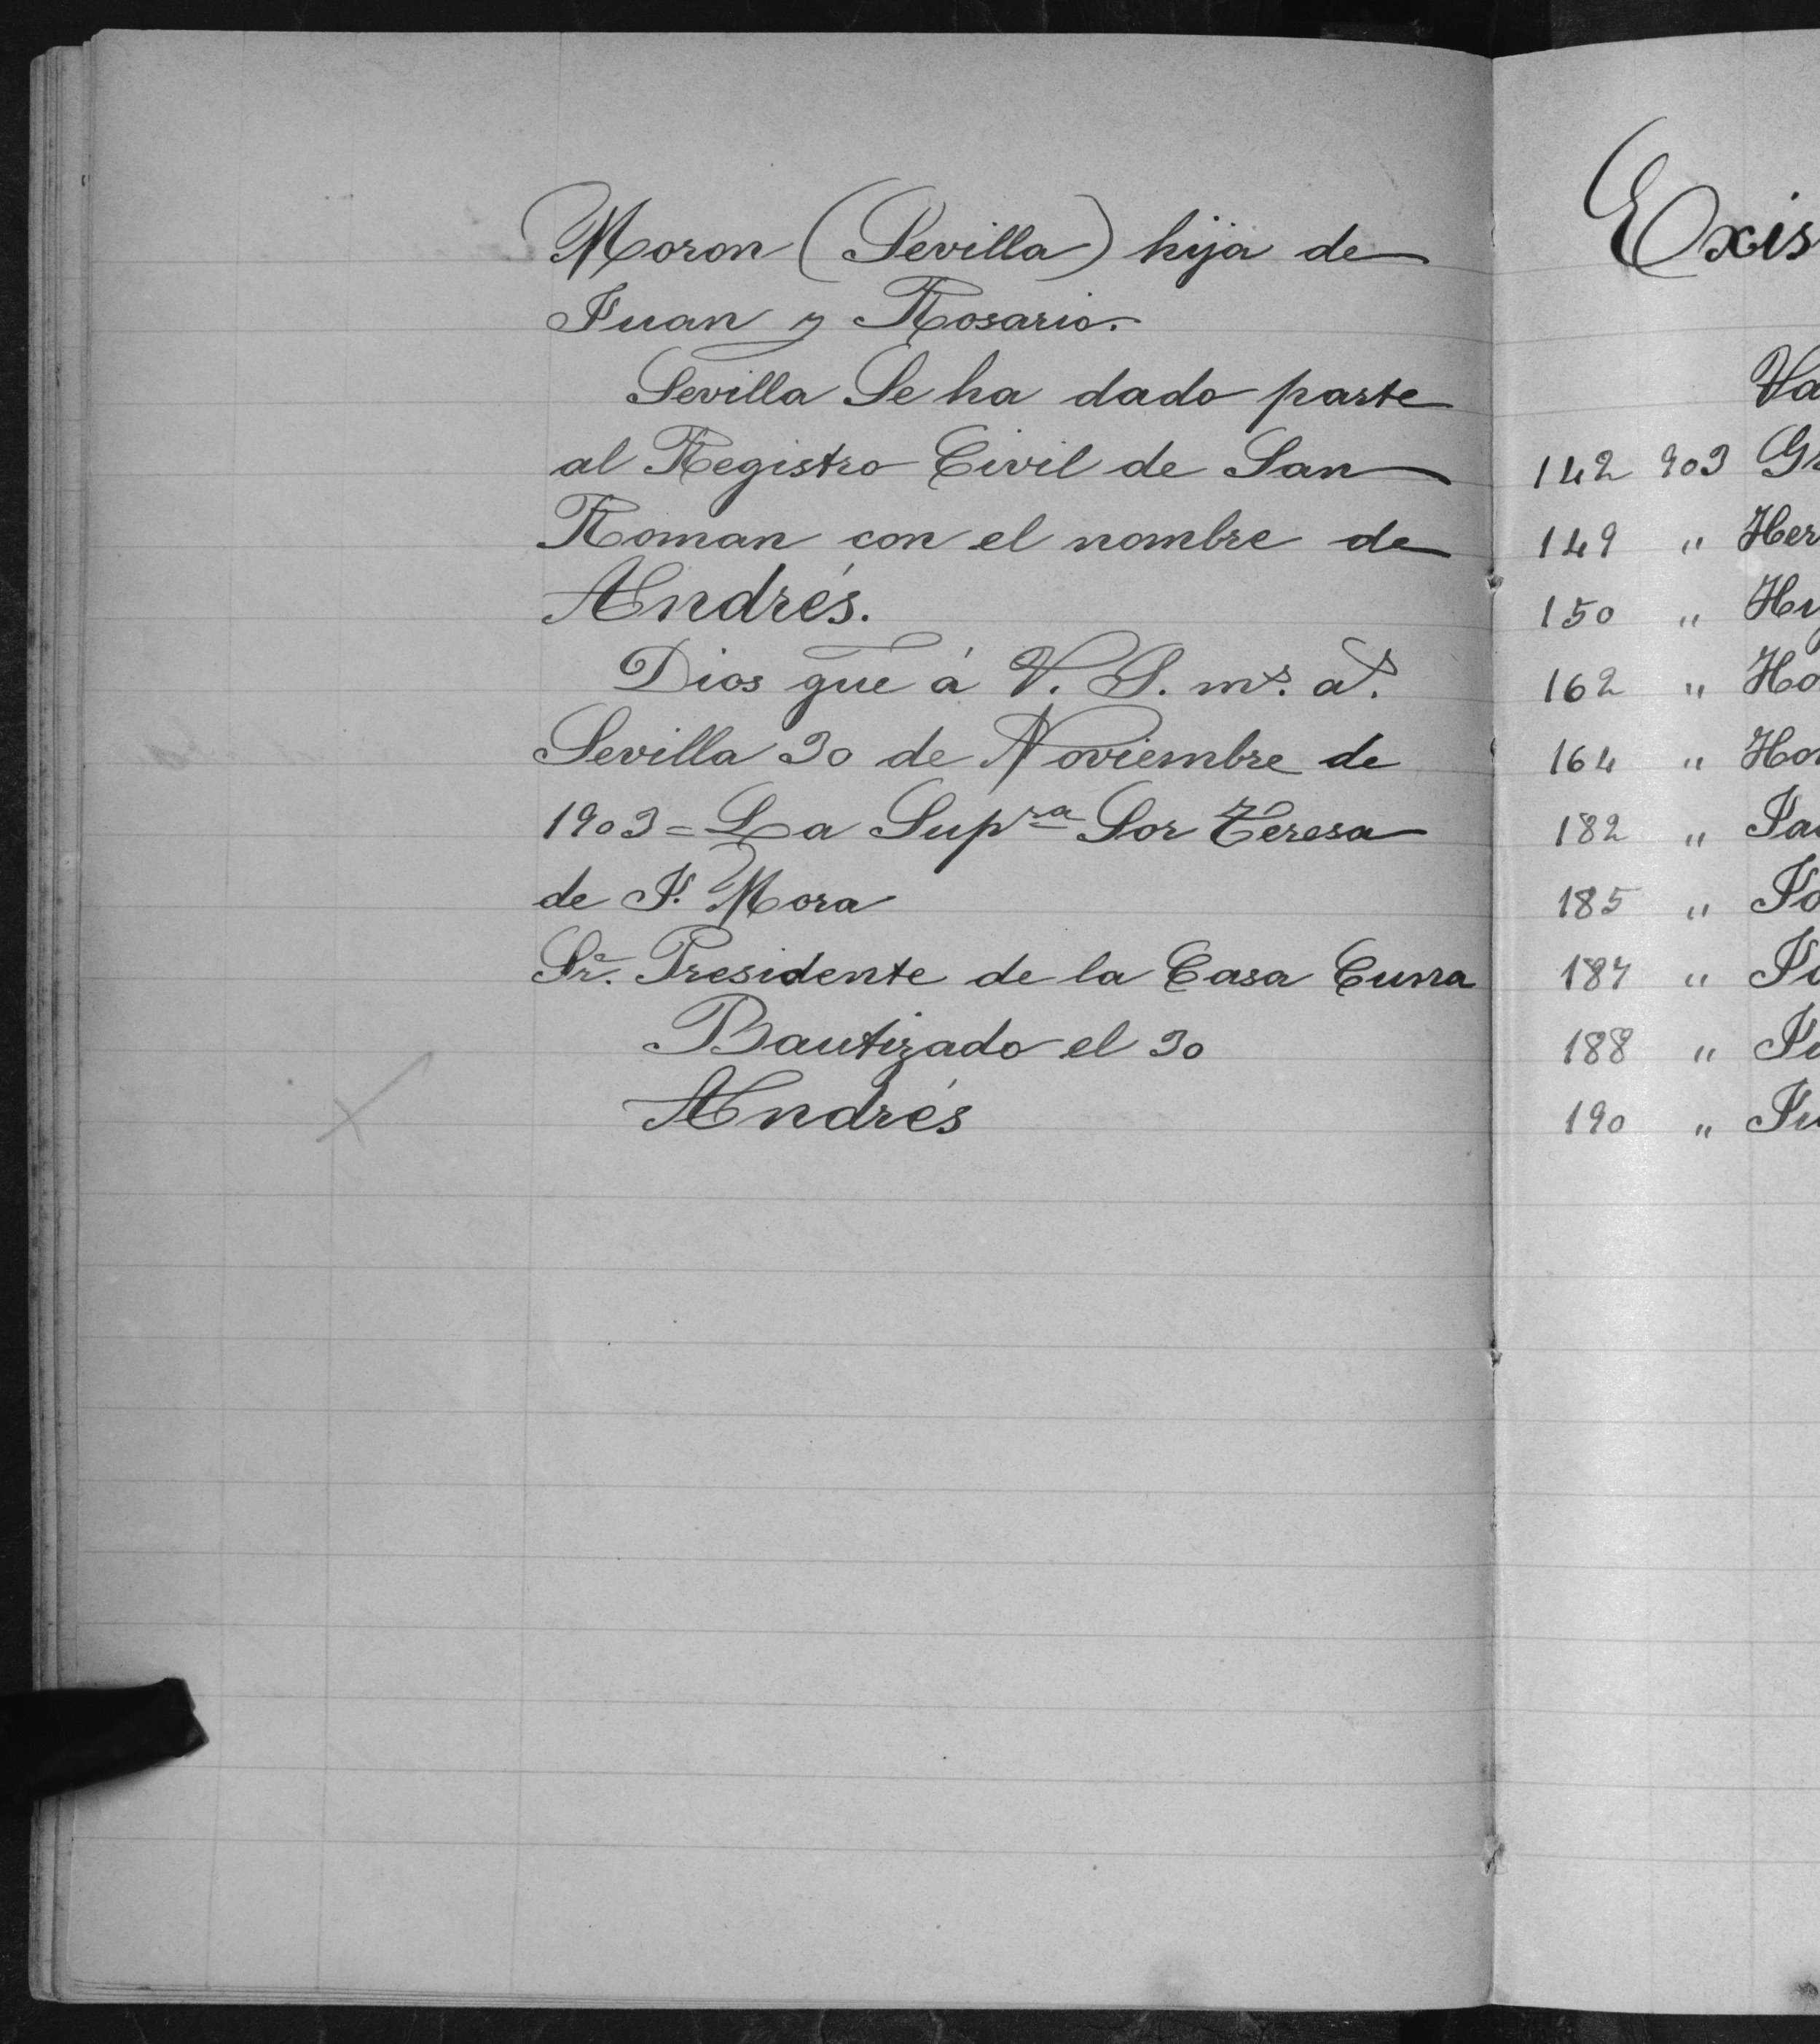 Moron (Sevilla) hija de
Juan y Rosario.
Sevilla Se ha dado parte
al Registro Civil de San
Roman con el nombre de
Andrés.
Dios gue á V. S. ms. as.
Sevilla 30 de Noviembre de
1903 = La Supra Sor Teresa
de J. Mora
Sr. Presidente de la Casa Cuna
Bautizado el 30
Andrés
Exis
Va
142 903 Gr
149 " Her
150 " Hu
162 " Ho
164 " Hor
182 " Ja
185 " Jo
187 " Ju
188 " Ju
190 " Ju